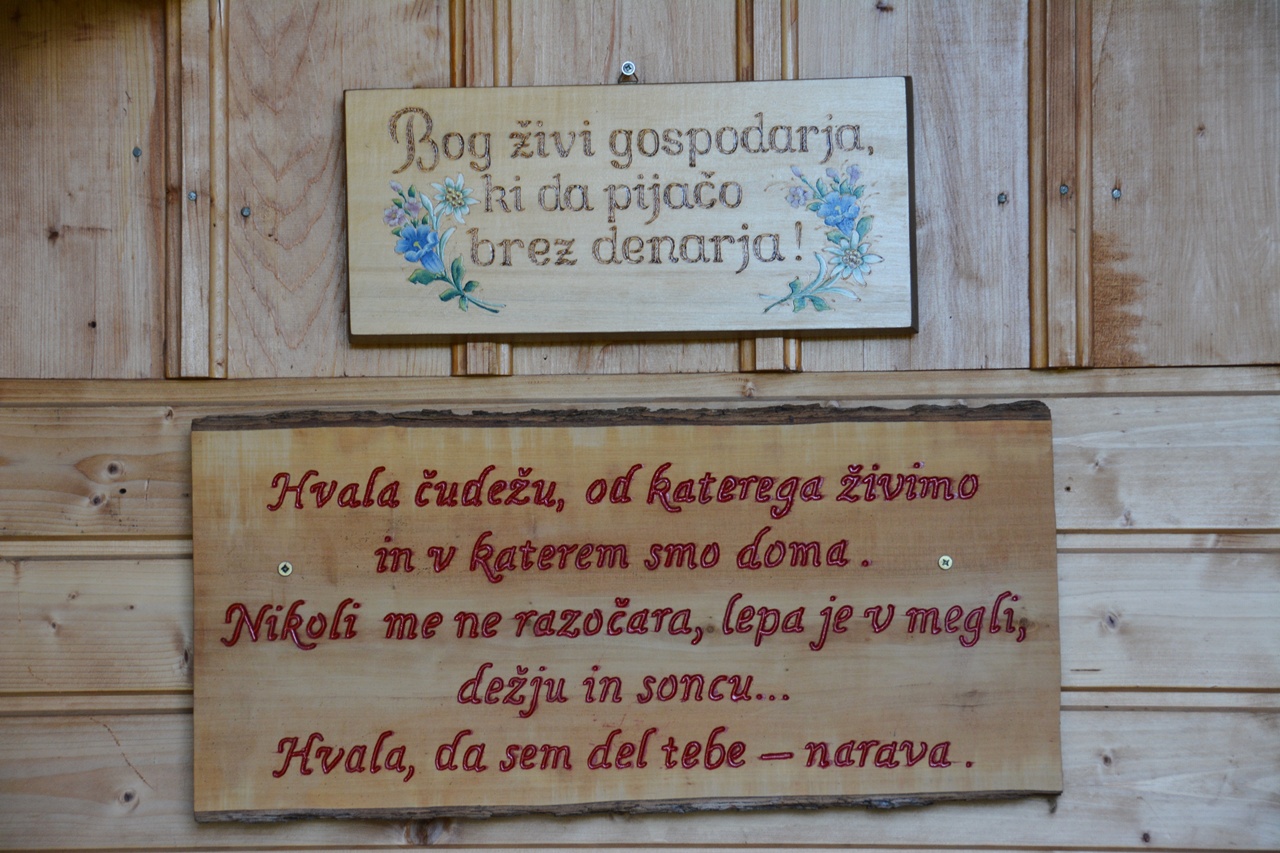 Bog živi gospodarja,
ki da pijačo
brez denarja!
Hvala čudežu, od katerega živimo
in v katerem smo doma.
Nikoli me ne razočara, lepa je v megli,
dežju in soncu...
Hvala, da sem del tebe – narava.